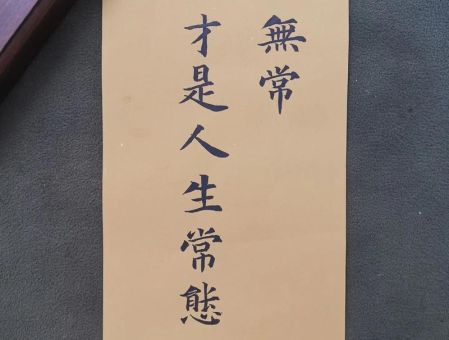 無常
才是人生常態